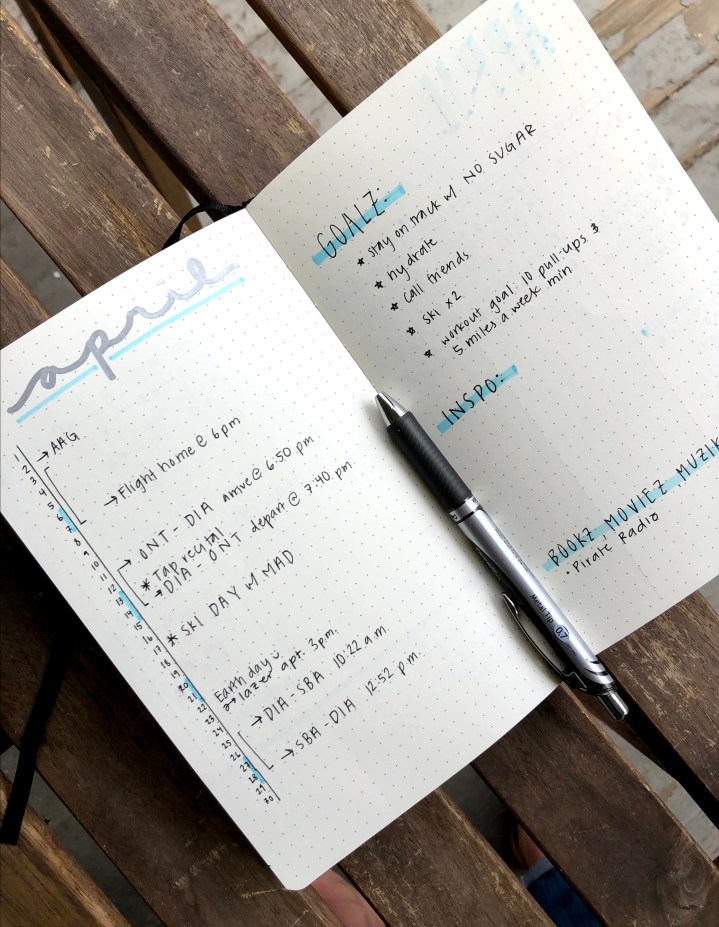 april
1
2
3
4
5
6
7
8
9
10
11
12
13
14
15
16
17
18
19
20
21
22
23
24
25
26
27
28
29
30
→ AAG
→ Flight home @ 6 pm
→ ONT - DIA arrive @ 6:50 pm
* Tap recital
→ DIA - ONT depart @ 7:40 pm.
* SKI DAY W MAD
Earth day
→ lazer apt. 3 p.m.
→ DIA - SBA 10:22 a.m.
→ SBA - DIA 12:52 p.m.
GOALZ:
★ stay on track w NO SUGAR
★ hydrate
★ call friends
★ ski x2
★ workout goal: 10 pull-ups &
5 miles a week min
INSPO:
BOOKZ, MOVIEZ, MUZIK
• Pirate Radio
Metal Tip 0.7